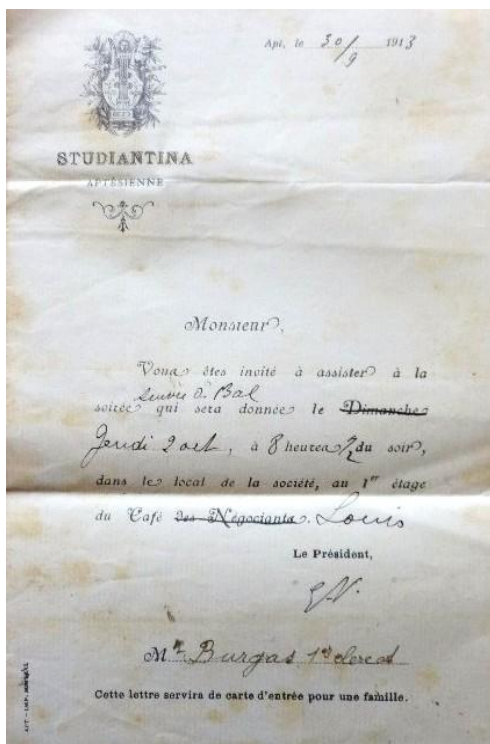 Apt, le 30/9 1913
STUDIANTINA
APTÉSIENNE
Monsieur,
Vous êtes invité à assister à la
suivie d. Bal
soirée qui sera donnée le Dimanche
Jeudi 2 oct, à 8 heures 1/2 du soir,
dans le local de la société, au 1er étage
du Café des Négociants. Louis
Le Président,
Mr. Burgas 1er clerc
Cette lettre servira de carte d'entrée pour une famille.
APT - IMP.